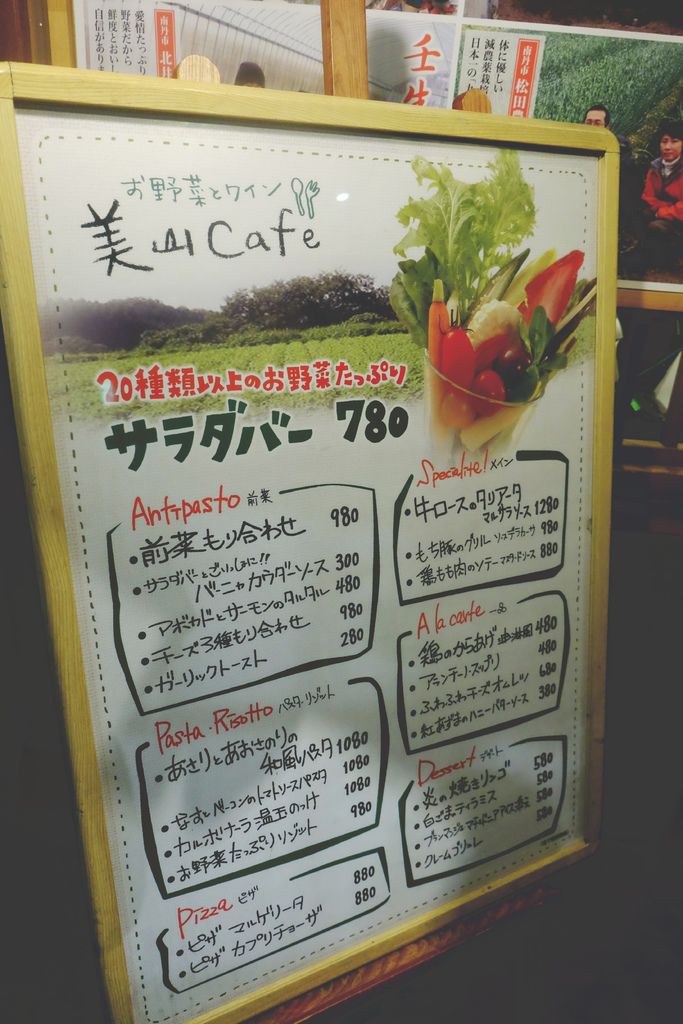 愛情たっぷり
野菜だから
鮮度とおいし
自信があります
南丹市
壬生
体に優しい
減農薬栽培
日本一の
南丹市 松田
お野菜とワイン
美山Cafe
20種類以上のお野菜たっぷり
サラダバー 780
Antipasto 前菜
・前菜もり合わせ 980
・サラダバーとごいっしょに!!
バーニャカウダーソース 300
・アボカドとサーモンのタルタル 480
・チーズ3種もり合わせ 980
・ガーリックトースト 280
Pasta・Risotto パスタ・リゾット
・あさりとあおさのりの
和風パスタ 1080
・なすとベーコンのトマトソースパスタ 1080
・カルボナーラ温玉のっけ 1080
・お野菜たっぷりリゾット 980
Pizza ピザ
・ピザ マルゲリータ 880
・ピザ カプリチョーザ 880
Specialite! メイン
・牛ロースのタリアータ
マルサラソース 1280
・もち豚のグリル 980
・鶏もも肉のソテーマスタードソース 880
A la carte 一品
・鶏のからあげ 480
・アランチーノ 480
・ふわふわチーズオムレツ 680
・紅あずまのハニーバターソース 380
Dessert デザート
・炎の焼きリンゴ 580
・白ごまティラミス 580
・ブランマンジェ 580
・クレームブリュレ 580